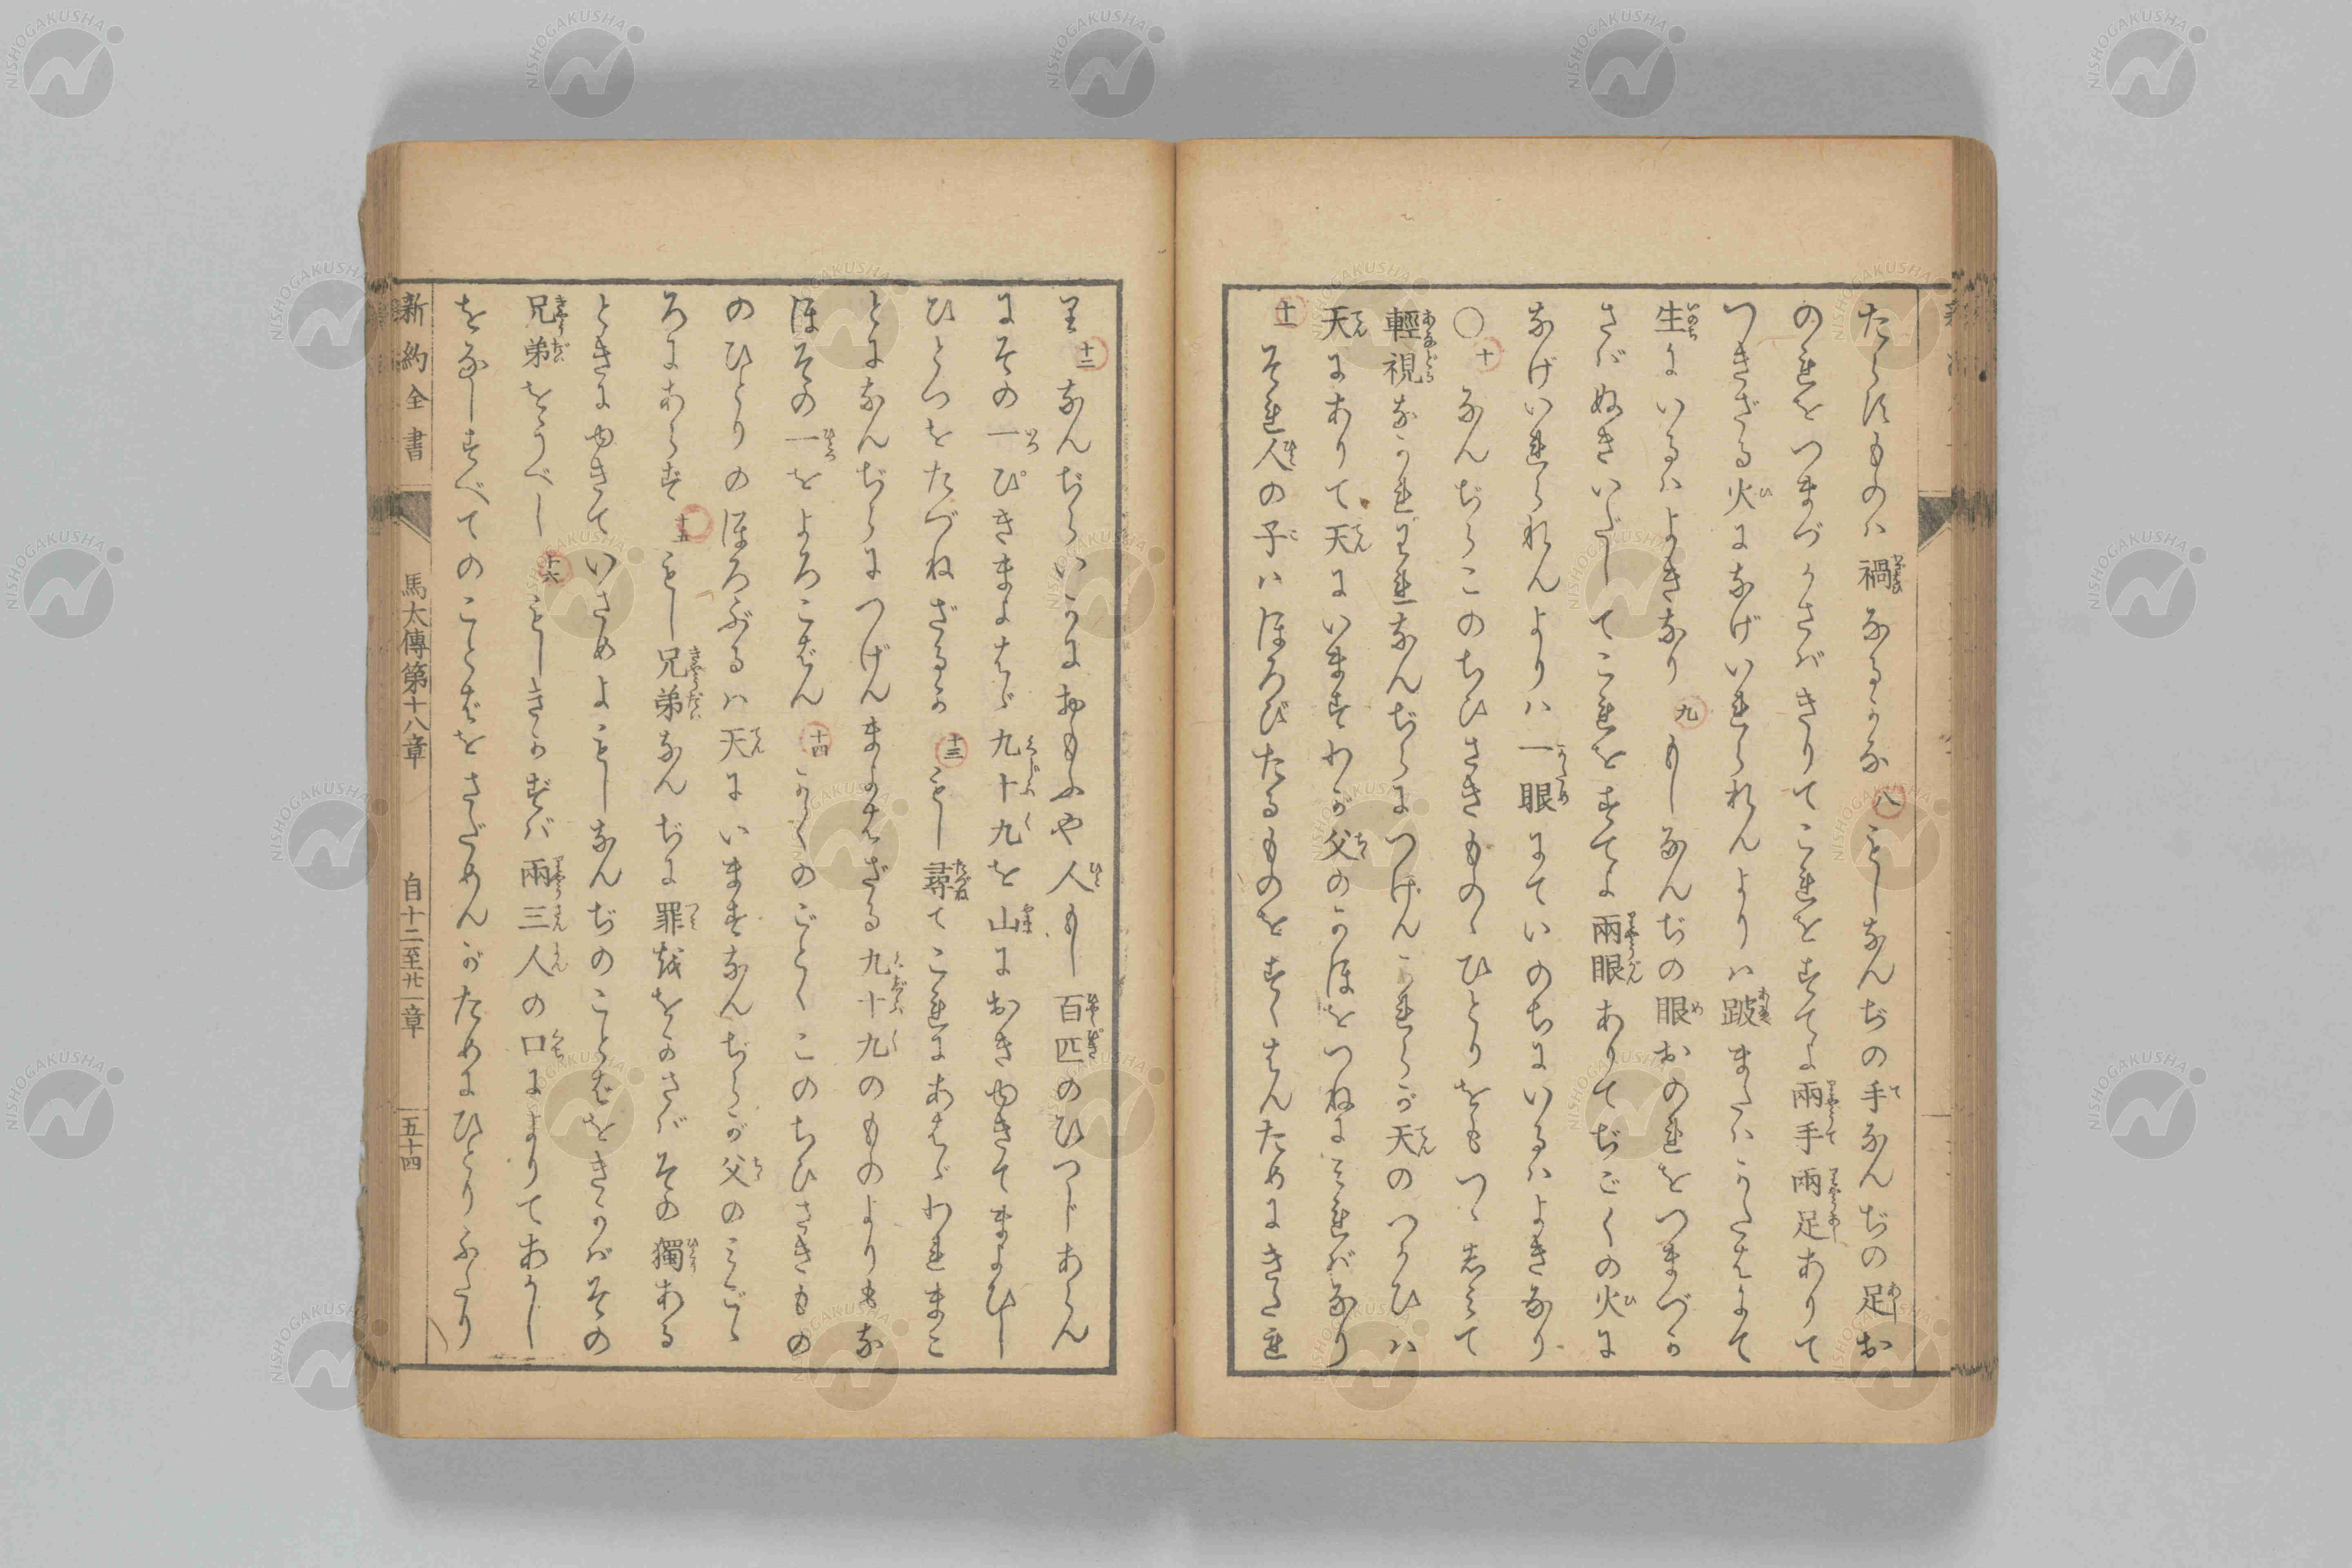 たらすものハ禍なるかな 八 もしなんぢの手なんぢの足お
のれをつまづかさバきりてこれをすてよ兩手兩足ありて
つきざる火になげいれられんよりハ跛またハかたはにて
生にいるハよきなり 九 もしなんぢの眼おのれをつまづか
さバぬきいだしてこれをすてよ兩眼ありてぢごくの火に
なげいれられんよりハ一眼にていのちにいるハよきなり
〇 十 なんぢらこのちひさきものゝひとりをもつゝしみて
輕視なかれそれなんぢらにつげんかれらが天のつかひハ
天にありて天にいますわが父のかほをつねにみれバなり
十一 それ人の子ハほろびたるものをすくはんためにきたれ
り 十二 なんぢらいかにおもふや人もし百匹のひつじあらん
にその一ぴきまよはゞ九十九を山におきゆきてまよひし
ひとつをたづねざるか 十三 もし尋てこれにあはゞわれまこ
とになんぢらにつげんまよはざる九十九のものよりもな
ほその一をよろこばん 十四 かくのごとくこのちひさきもの
のひとりのほろぶるハ天にいますなんぢらが父のみこゝ
ろにあらず 十五 もし兄弟なんぢに罪をかさバその獨ある
ときにゆきていさめよもしなんぢのことばをきかバその
兄弟をうべし 十六 もしきかずバ兩三人の口によりてあかし
をなしすべてのことばをさだめんがためにひとりふたり
新約全書 馬太傳第十八章 自十二至廿一章 五十四
NISHOGAKUSHA